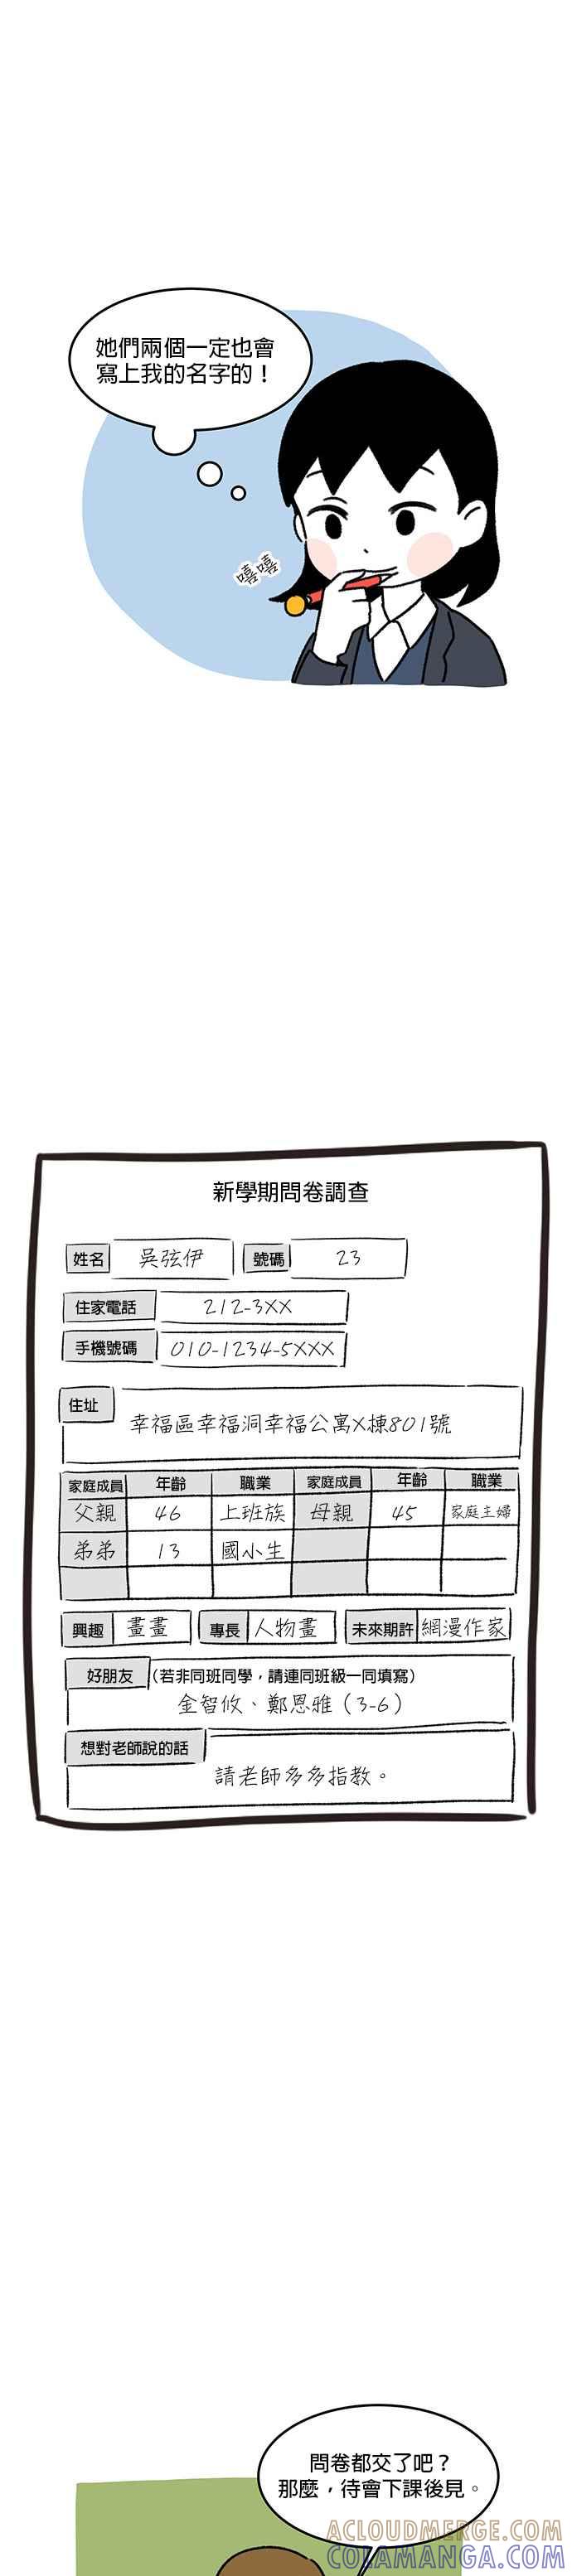 她們兩個一定也會
寫上我的名字的！
嘻嘻
新學期問卷調查
姓名 吳弦伊 號碼 23
住家電話 212-3XX
手機號碼 010-1234-5XXX
住址 幸福區幸福洞幸福公寓X棟801號
家庭成員 年齡 職業 家庭成員 年齡 職業
父親 46 上班族 母親 45 家庭主婦
弟弟 13 國小生
興趣 畫畫 專長 人物畫 未來期許 網漫作家
好朋友 (若非同班同學，請連同班級一同填寫)
金智攸、鄭恩雅（3-6）
想對老師說的話
請老師多多指教。
問卷都交了吧？
那麼，待會下課後見。
ACLOUDMERGE.COM
COLAMANGA.COM